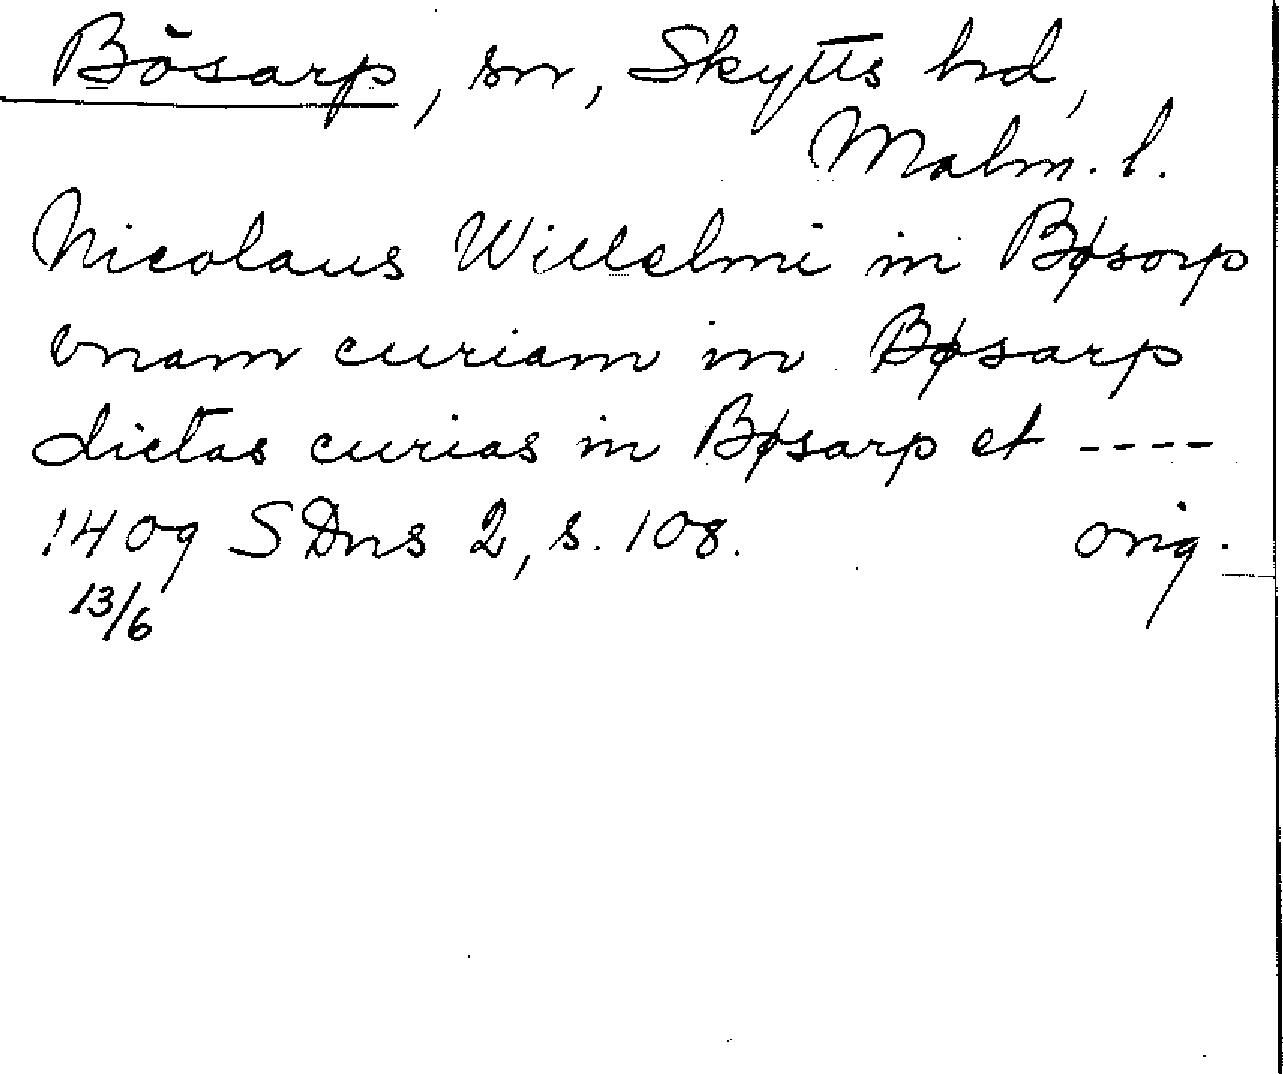 Bösarp, sn, Skytts hd,
Malm. l.
Nicolaus Willelmi in Bøsorp
vnam curiam in Bøsarp
dictas curias in Bøsarp et ----
1409 SDns 2, s. 108. orig.
13/6